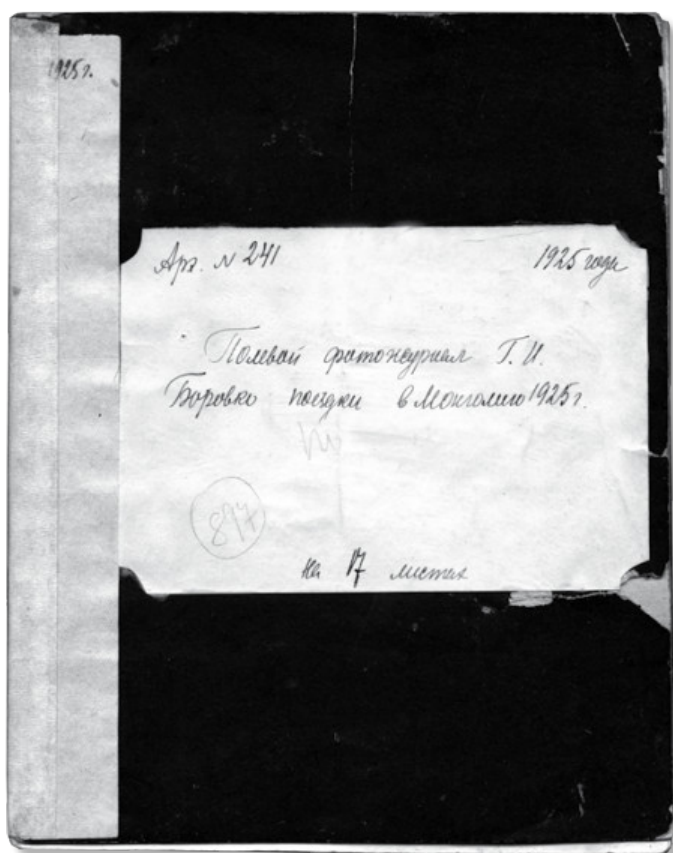 1925г.
Арх. N 241
1925 года
Полевой фотожурнал Г. И.
Боровко поездки в Монголию 1925г.
897
на 17 листах